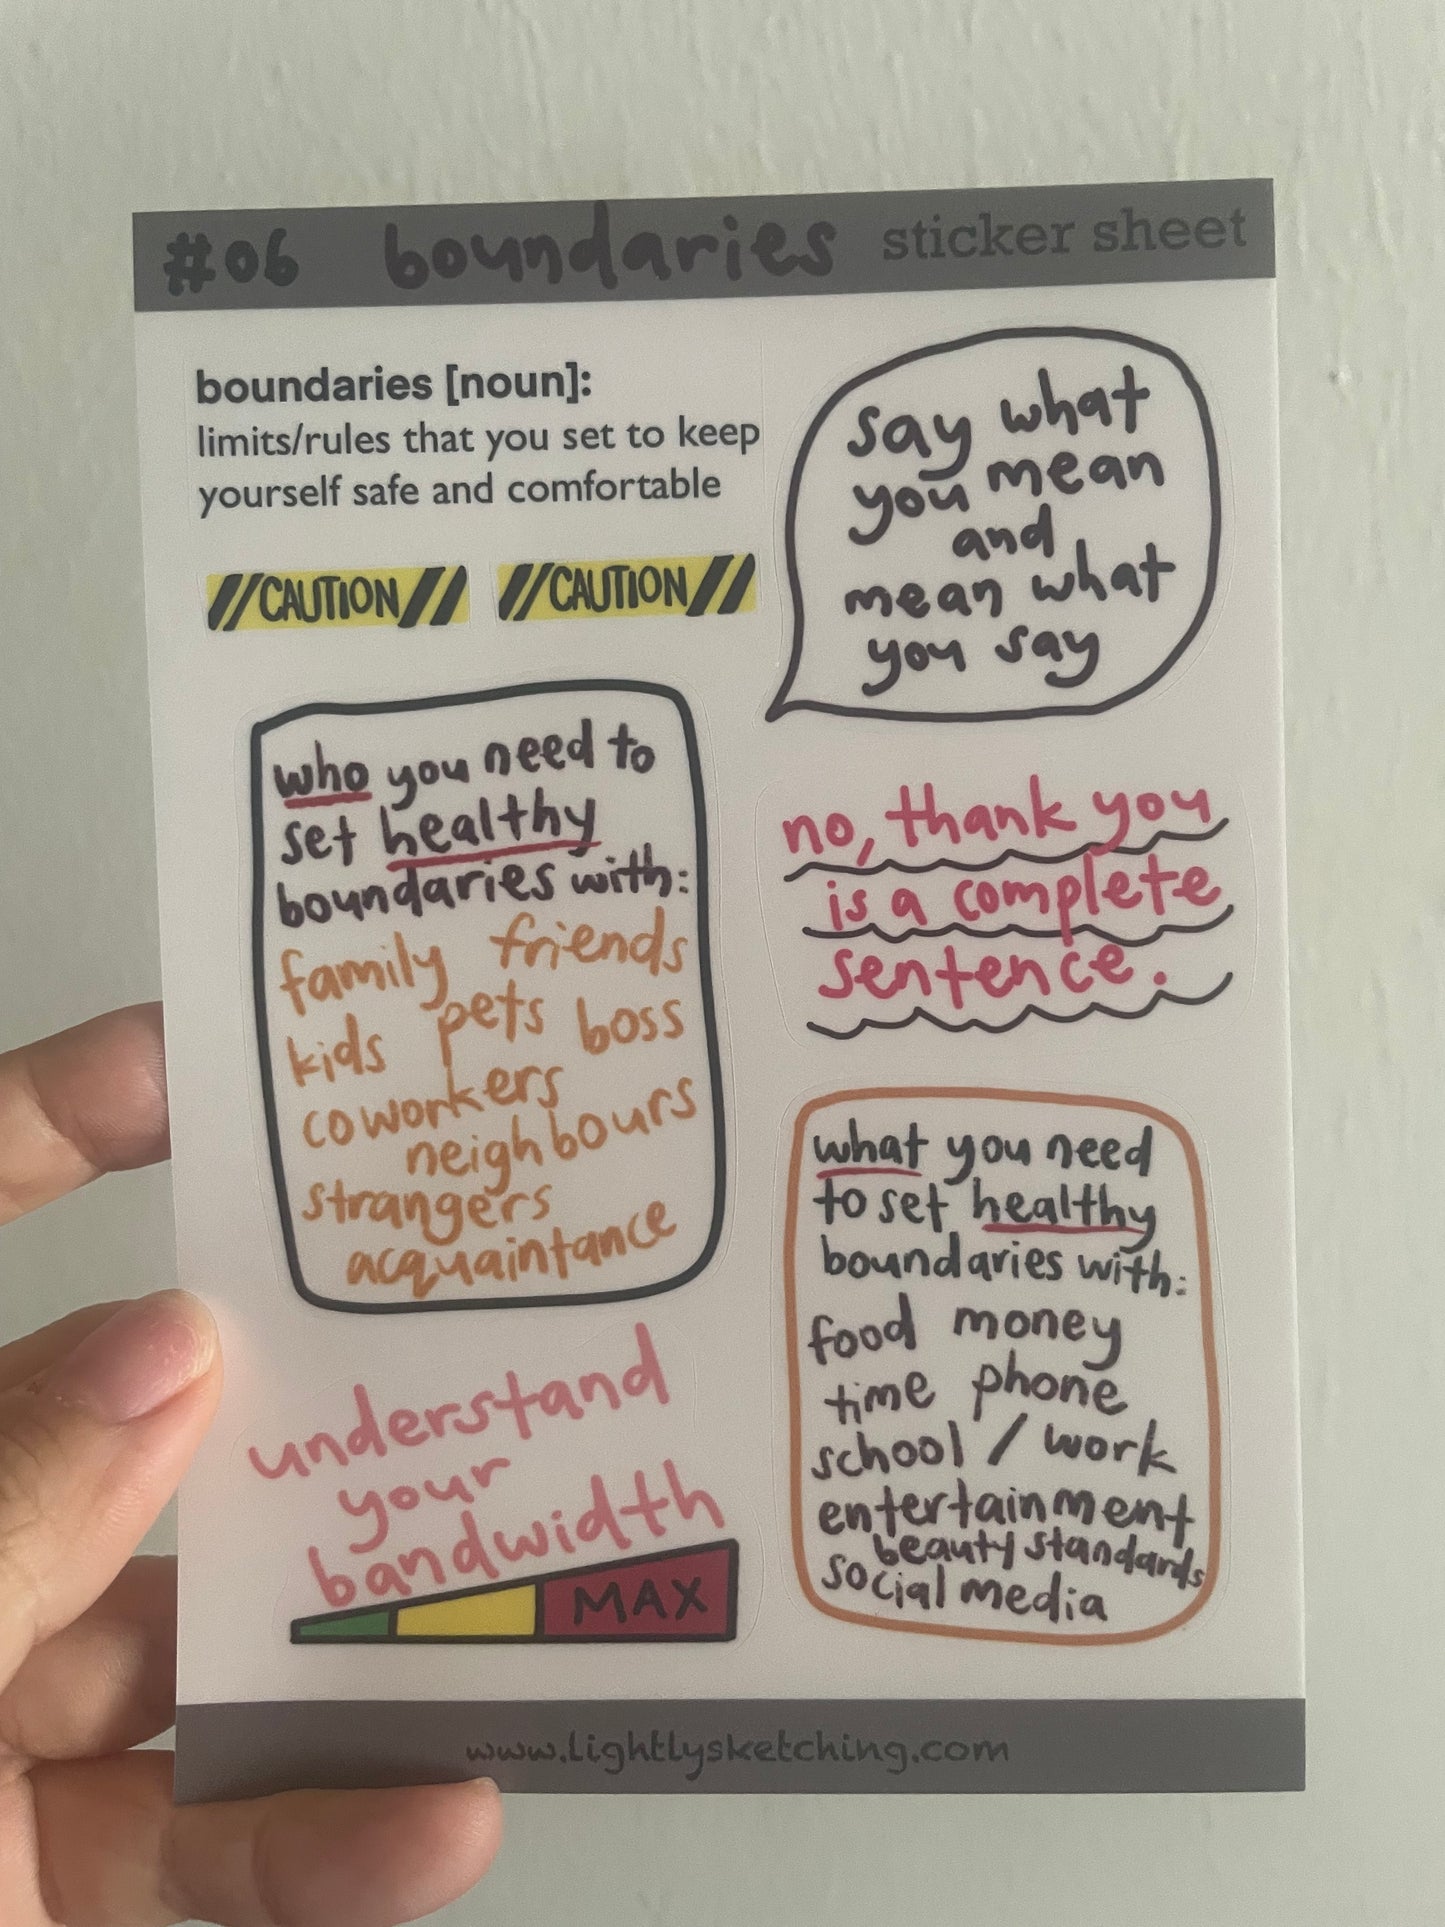 #06 boundaries sticker sheet
boundaries [noun]:
limits/rules that you set to keep
yourself safe and comfortable
//CAUTION// //CAUTION//
say what
you mean
and
mean what
you say
who you need to
set healthy
boundaries with:
family friends
kids pets boss
coworkers
neighbours
strangers
acquaintance
no, thank you
is a complete
sentence.
what you need
to set healthy
boundaries with:
food money
time phone
school / work
entertainment
beauty standards
social media
understand
your
bandwidth
MAX
www.lightlysketching.com